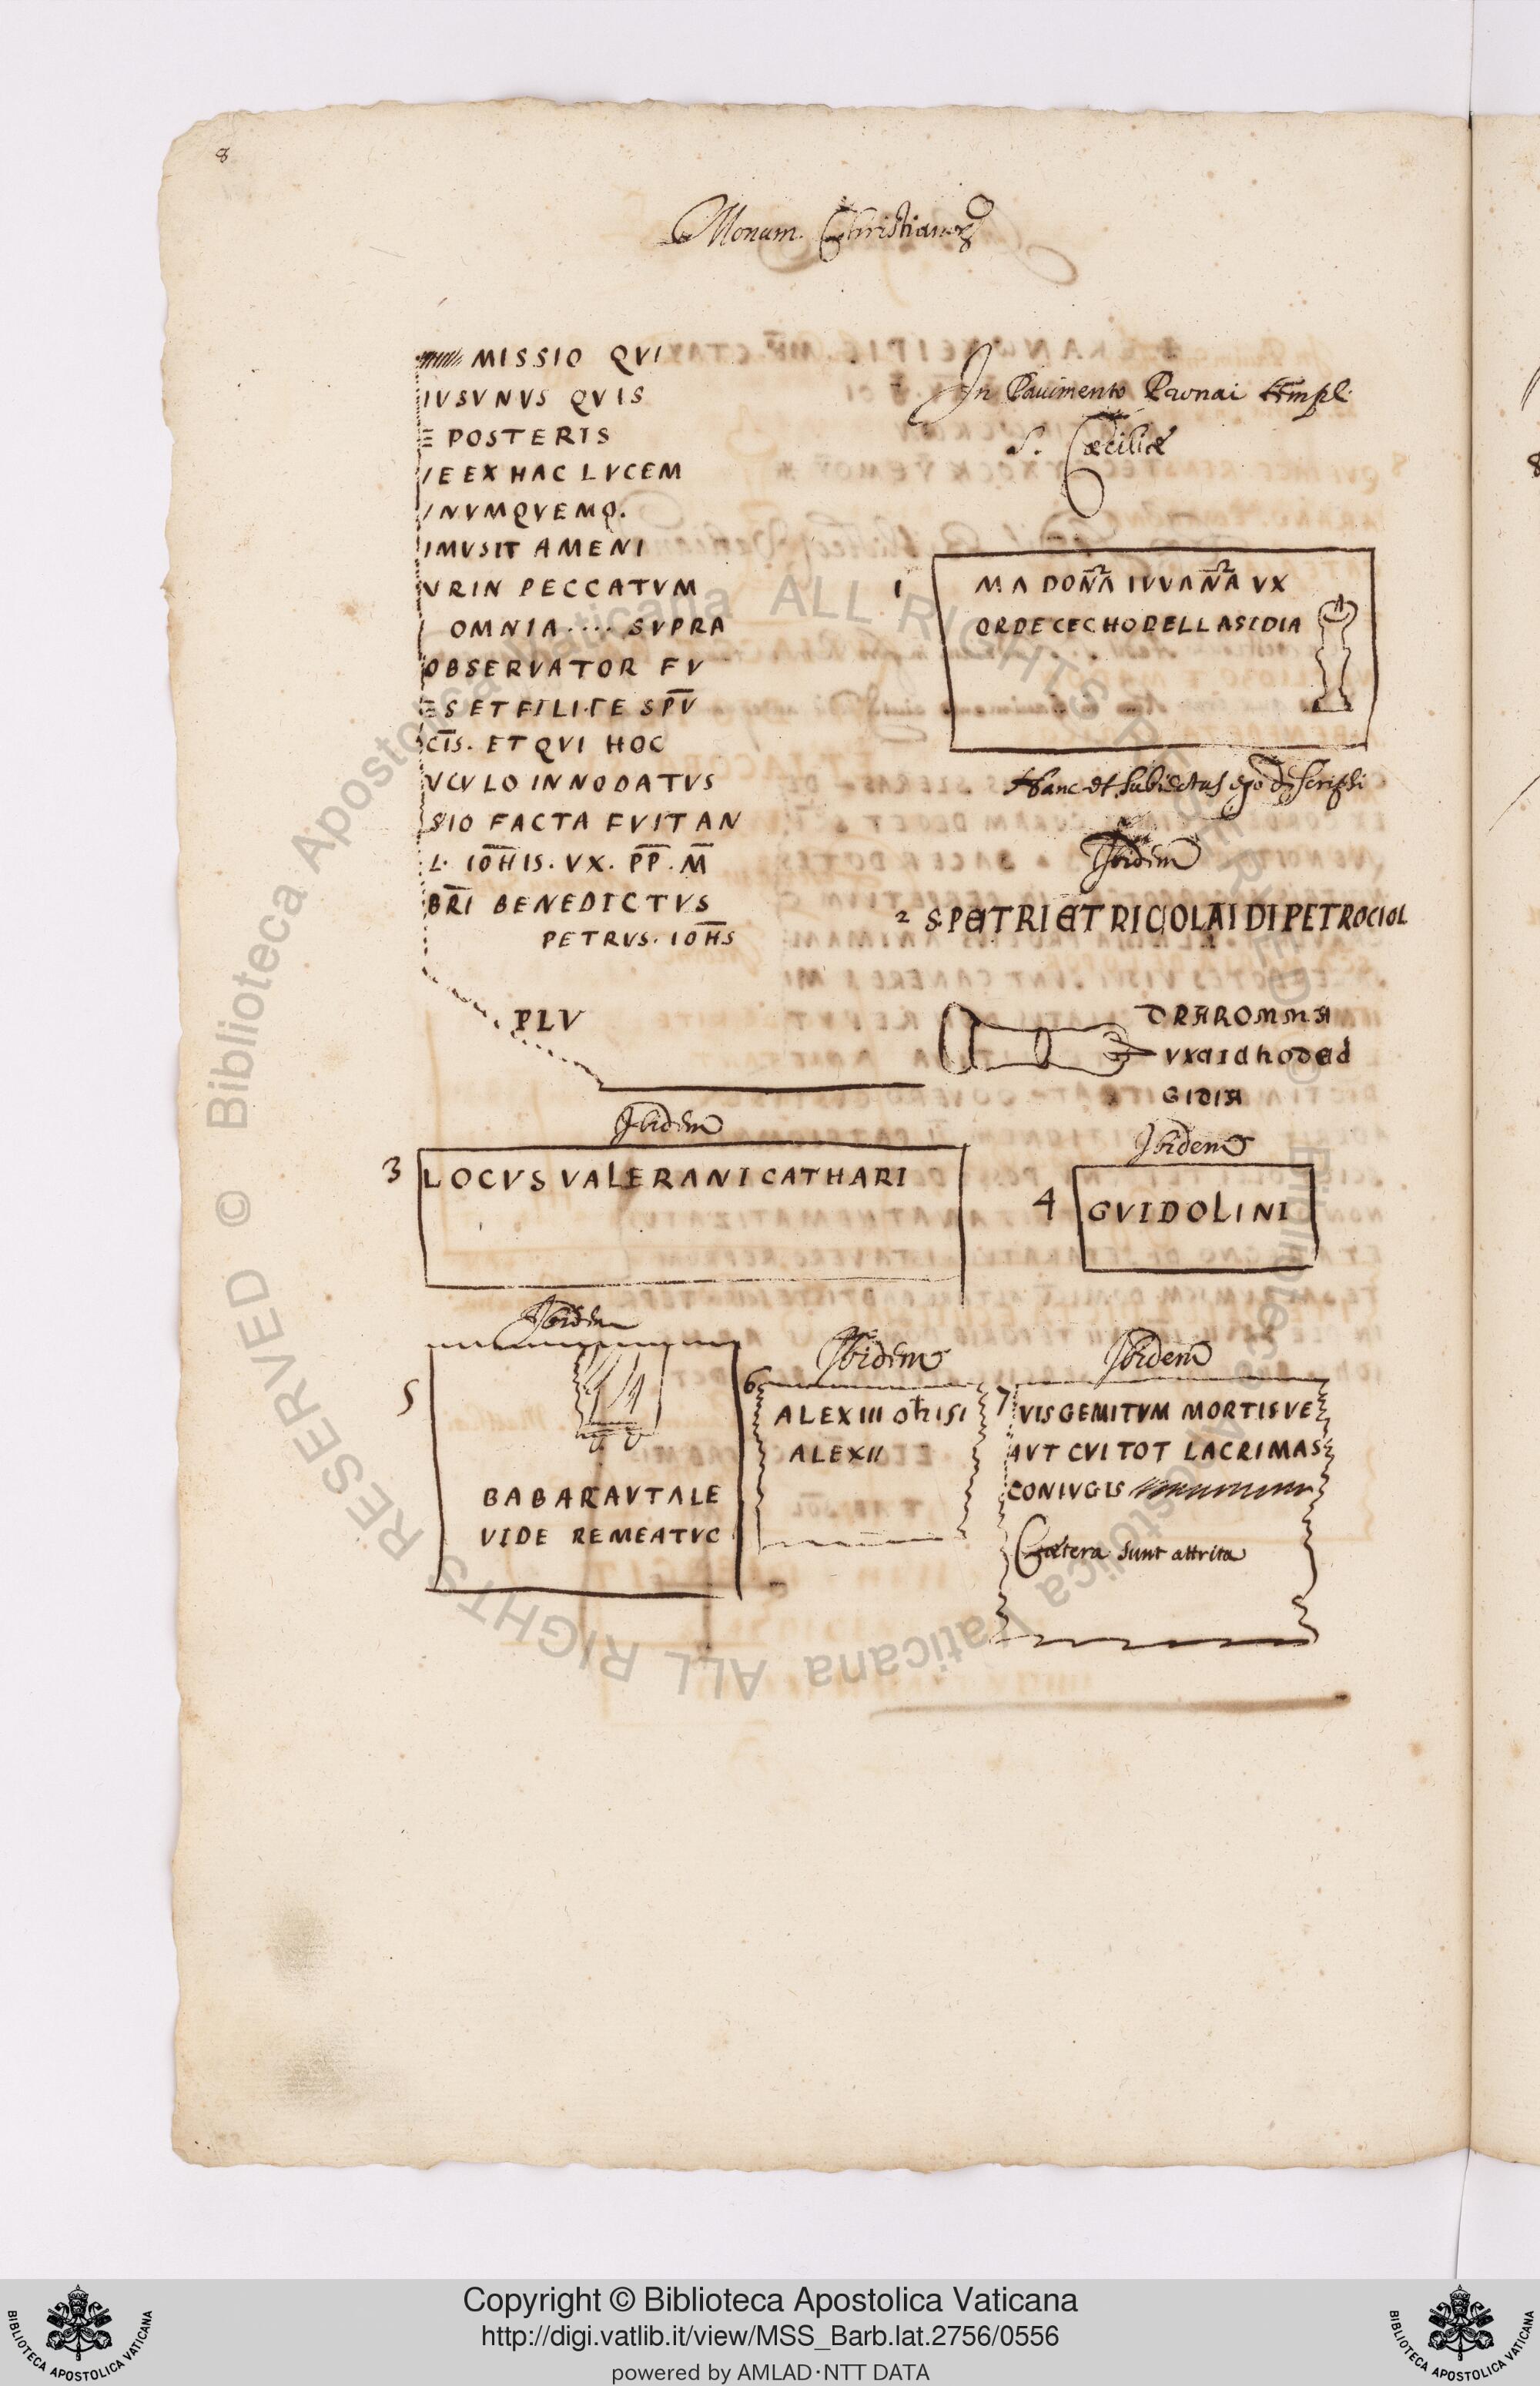 8
Monum. Christianor
MISSIO QVI
IVSVNVS QVIS
E POSTERIS
IE EX HAC LVCEM
INVMQVEMQ.
IMVSIT AMENI
VRIN PECCATVM
OMNIA .... SVPRA
OBSERVATOR FV
ES ET FILI·ΓE SPV̅
CI̅S. ET QVI HOC
VCVLO INNODATVS
SIO FACTA FVIT AN
L. IOH̅IS. VX. P̅P̅. M̅
BR̅I BENEDICTVS
PETRVS. IOH̅S
PLV
In Pauimento Pronai templ.
S. Cæciliæ
1
MA DON̅A IVVAN̅A VX
ORDECECHODELLASIDIA
Hanc et subiectas ego descripsi
Ibidem
2 S·PETRI ET NICOLAI DI PETROCIOL
GIDIA
Ibidem
3 LOCVS VALERANI CATHARI
Ibidem
4 GVIDOLINI
Ibidem
5
BABARAVTALE
VIDE REMEATVC
Ibidem
6
ALEXIII OħISI
ALEXII
Ibidem
7 VIS GEMITVM MORTIS VE
AVT CVI TOT LACRIMAS
CONIVGIS
Cætera sunt attrita
© Biblioteca Apostolica Vaticana ALL RIGHTS RESERVED
© Biblioteca Apostolica Vaticana ALL RIGHTS RESERVED
Copyright © Biblioteca Apostolica Vaticana
http://digi.vatlib.it/view/MSS_Barb.lat.2756/0556
powered by AMLAD·NTT DATA
BIBLIOTECA APOSTOLICA VATICANA
BIBLIOTECA APOSTOLICA VATICANA